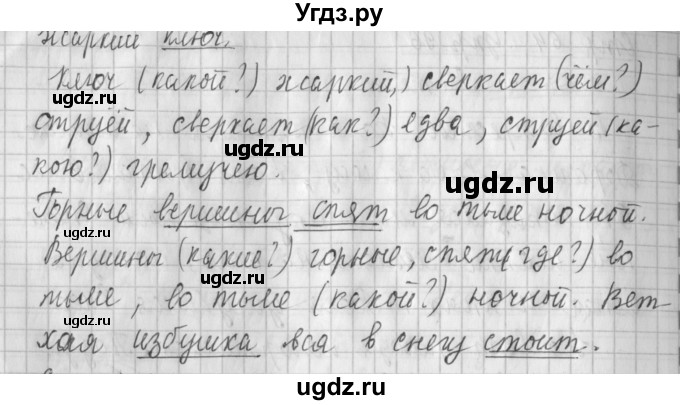 Угдз.ру
жаркий ключ.
Ключ (какой?) жаркий,) сверкает (чем?)
ugdz.ru
ugdz.ru
струёй, сверкает (как?) едва, струей (ка-
ugdz.ru
кою?) гремучею.
ugdz.ru
Горные вершины спят во тьме ночной.
Вершины (какие?) горные, спят (где?) во
ugdz.ru
тьме, во тьме (какой?) ночной. Вет-
ugdz.ru
хая избушка вся в снегу стоит.
ugdz.ru
ugdz.ru